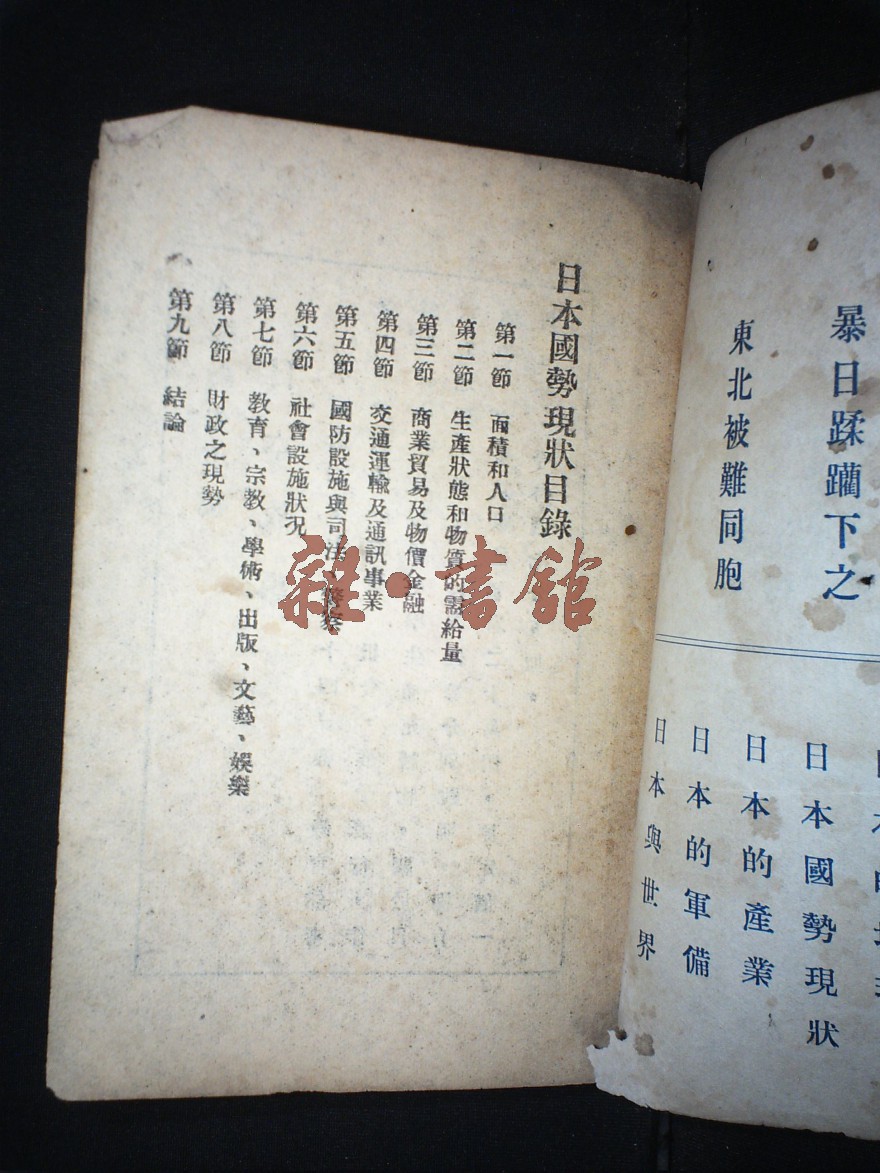 暴日蹂躪下之
東北被難同胞
日本國勢現狀
日本的產業
日本的軍備
日本與世界
日本國勢現狀目錄
第一節 面積和人口
第二節 生產狀態和物質的需給量
第三節 商業貿易及物價金融
第四節 交通運輸及通訊事業
第五節 國防設施與司法警察
第六節 社會設施狀況
第七節 教育、宗教、學術、出版、文藝、娛樂
第八節 財政之現勢
第九節 結論
雜·書館